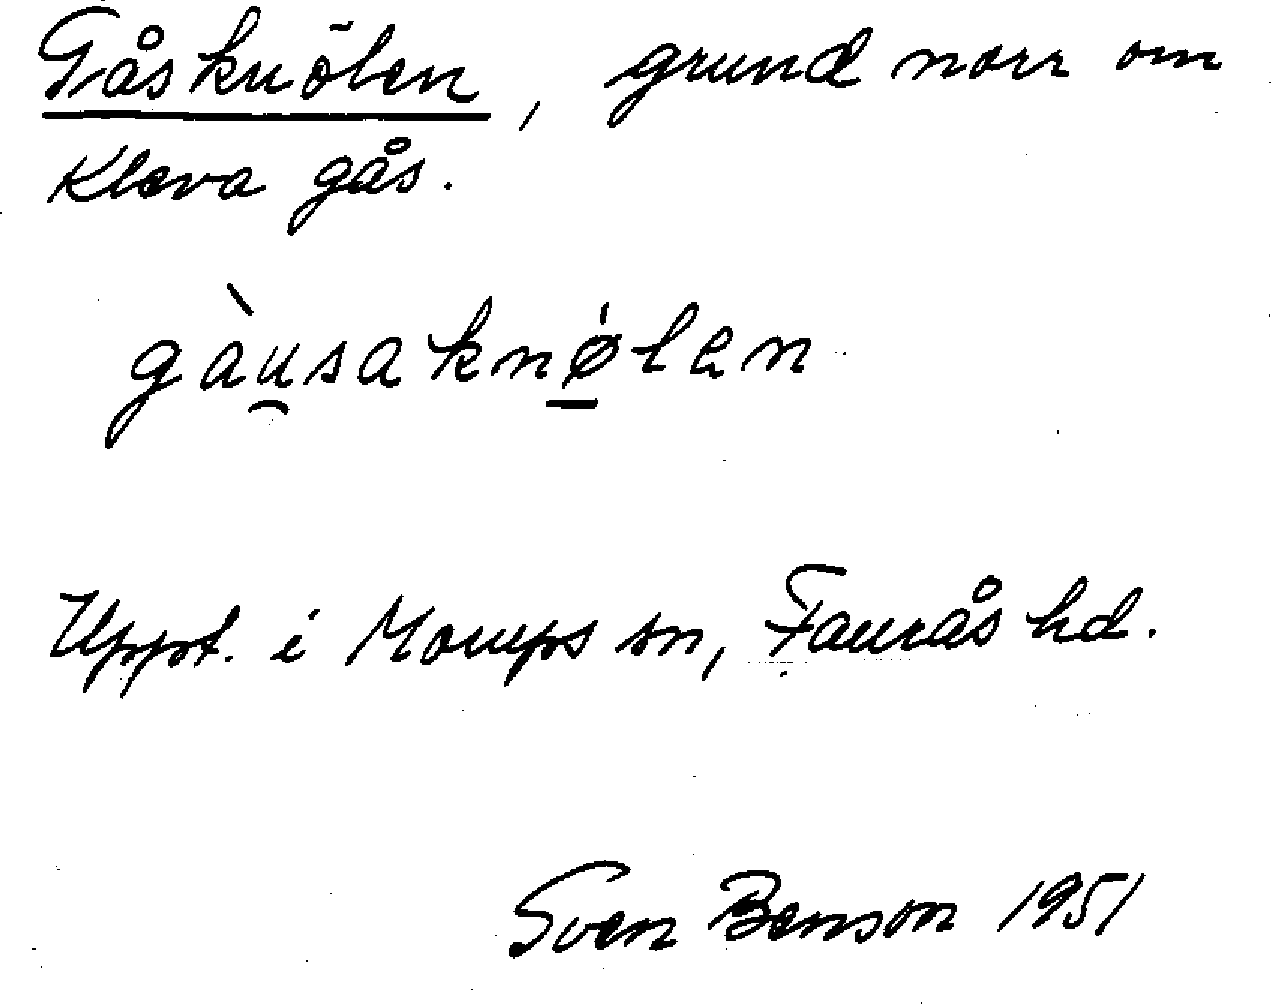 Gåsknölen, grund norr om
Kleva gås.
gàu̯saknǿ̱len
Uppt. i Morups sn, Faurås hd.
Sven Benson 1951